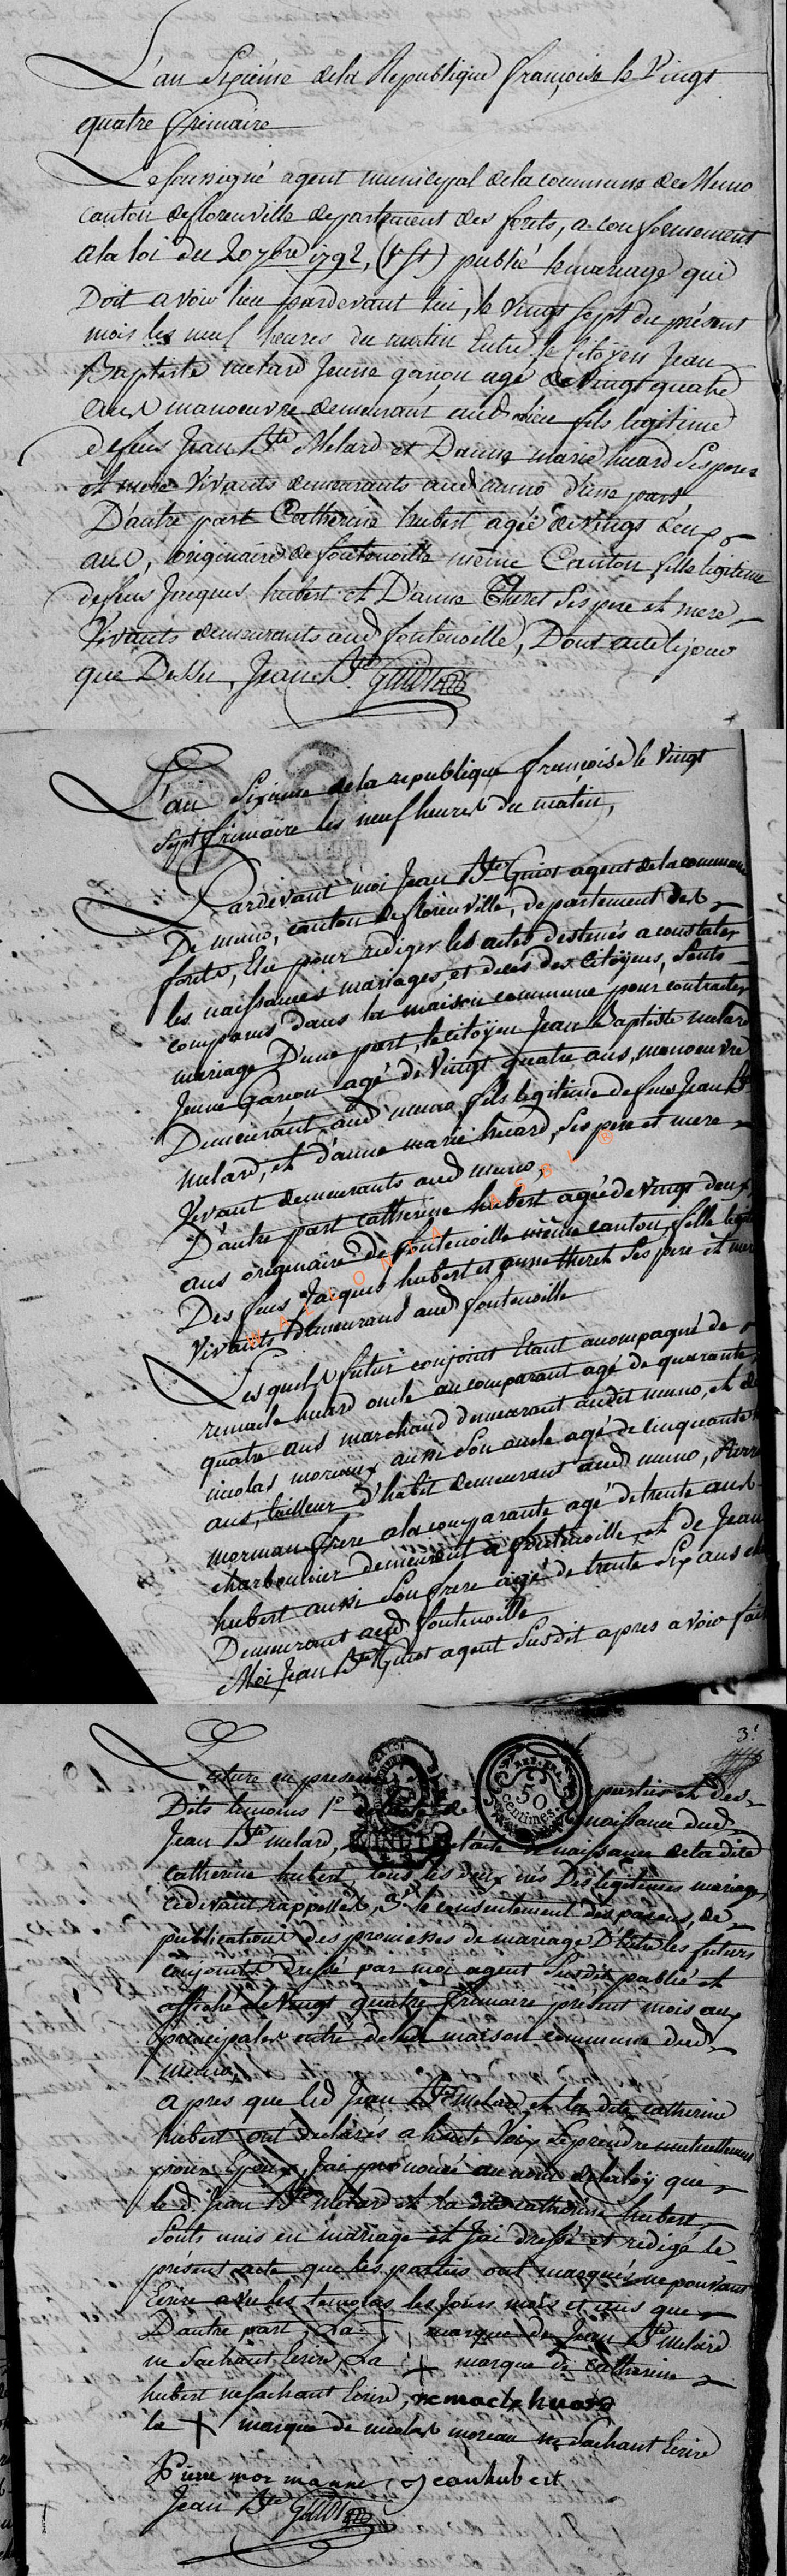 L'an Sixiéme de la Republique françoise le Vingt
quatre frimaire
Le soussigné agent municipal de la commune de Muno
canton de florenville departement des forets, a conformement
a la loi du 20 7bre 1792, (v st) publié le mariage qui
Doit avoir lieu pardevant lui, le vingt sept du présent
mois les neuf heures du matin Entre le Citoÿen Jean
Baptiste melard Jeune garçon agé de vingt quatre
ans manoeuvre demeurant aud lieu fils legitime
de feus Jean Bte Melard et Danne marie huard Ses pere
et mere Vivants demeurants aud muno d'une part
D'autre part Catherine hubert agée de vingt deux
ans, originaire de fontenoille même Canton fille legitime
de feus Jacques hubert et D'anne Theret Ses pere et mere
Vivants demeurants aud fontenoille, Dont acte le jour
que Dessu, Jean Bte Guiot
L'an Sixieme de la republique françoise le vingt
sept frimaire les neuf heures du matin,
Pardevant moi Jean Bte Guiot agent de la commune
De muno, canton de florenville, departement des
forets, Elu pour rediger les actes destinés a constater
les naissances mariages, et deces des Citoÿens, Sonts
comparus dans la maison commune pour contracter
mariage D'une part, le citoÿen Jean Baptiste melard
Jeune Garçon agé de Vingt quatre ans, manoeuvre
Demeurant aud muno, fils legitime de feus Jean Bte
melard, et d'anne marie huard, Ses pere et mere
Vivant demeurants aud muno,
D'autre part catherine hubert agée de vingt deux
ans originaire de fontenoille même canton, fille legit
Des feus Jacques hubert et anne theret Ses pere et mere
Vivants demeurand aud fontenoille
WALLONIA ASBL ®
Lesquels futur conjoint Etant acompagné de
remacle huard oncle au comparant agé de quarante
quatre ans marchand demeurant audit muno, et de
nicolas moreaux aussi Son oncle agé de cinquante
ans, tailleur d'habit demeurant aud muno, Pierre
morman frere a la comparante agé de trente ans
charbonnier demeurant a fontenoille, et de Jean
hubert aussi Son frere agé de trente Six ans
Demeurant aud fontenoille
Moi Jean Bte Guiot agent Susdit apres avoir fait
3.
Lecture en presence parties et des
Dits temoins 1° de naissance dud
Jean Bte melard, de l'acte de naissance de la dite
50 centimes
catherine hubert, tous les deux nés Des legitimes mariage
cidevant rappellés, 3° le consentement des parens, de
publications des promesses de mariage D'Entre les futurs
conjoints dressé par moi agent Susdit publié et
affiché le vingt quatre frimaire present mois aux
principales entré de la maison commune dud
muno,
apres que led Jean Bte melard et la dite catherine
hubert ont declarés a haute Voix Se prendre mutuellement
pour Epoux, J'ai prononcé au nom de la loÿ que
le d. Jean Bte melard et la dite catherine hubert
Sonts unis en mariage et J'ai dressé et redigé le
présent acte que les parties ont marqués ne pouvant
Ecrire avec les temoins les Jours mois et ans que
D'autre part, La + marque de Jean Bte melard
ne Sachant Ecrire, La + marque de catherine
hubert ne sachant Ecrire, remacle huard
la + marque de nicolas moreau ne Sachant Ecrire
Pierre mormanne, jean hubert
Jean Bte Guiot